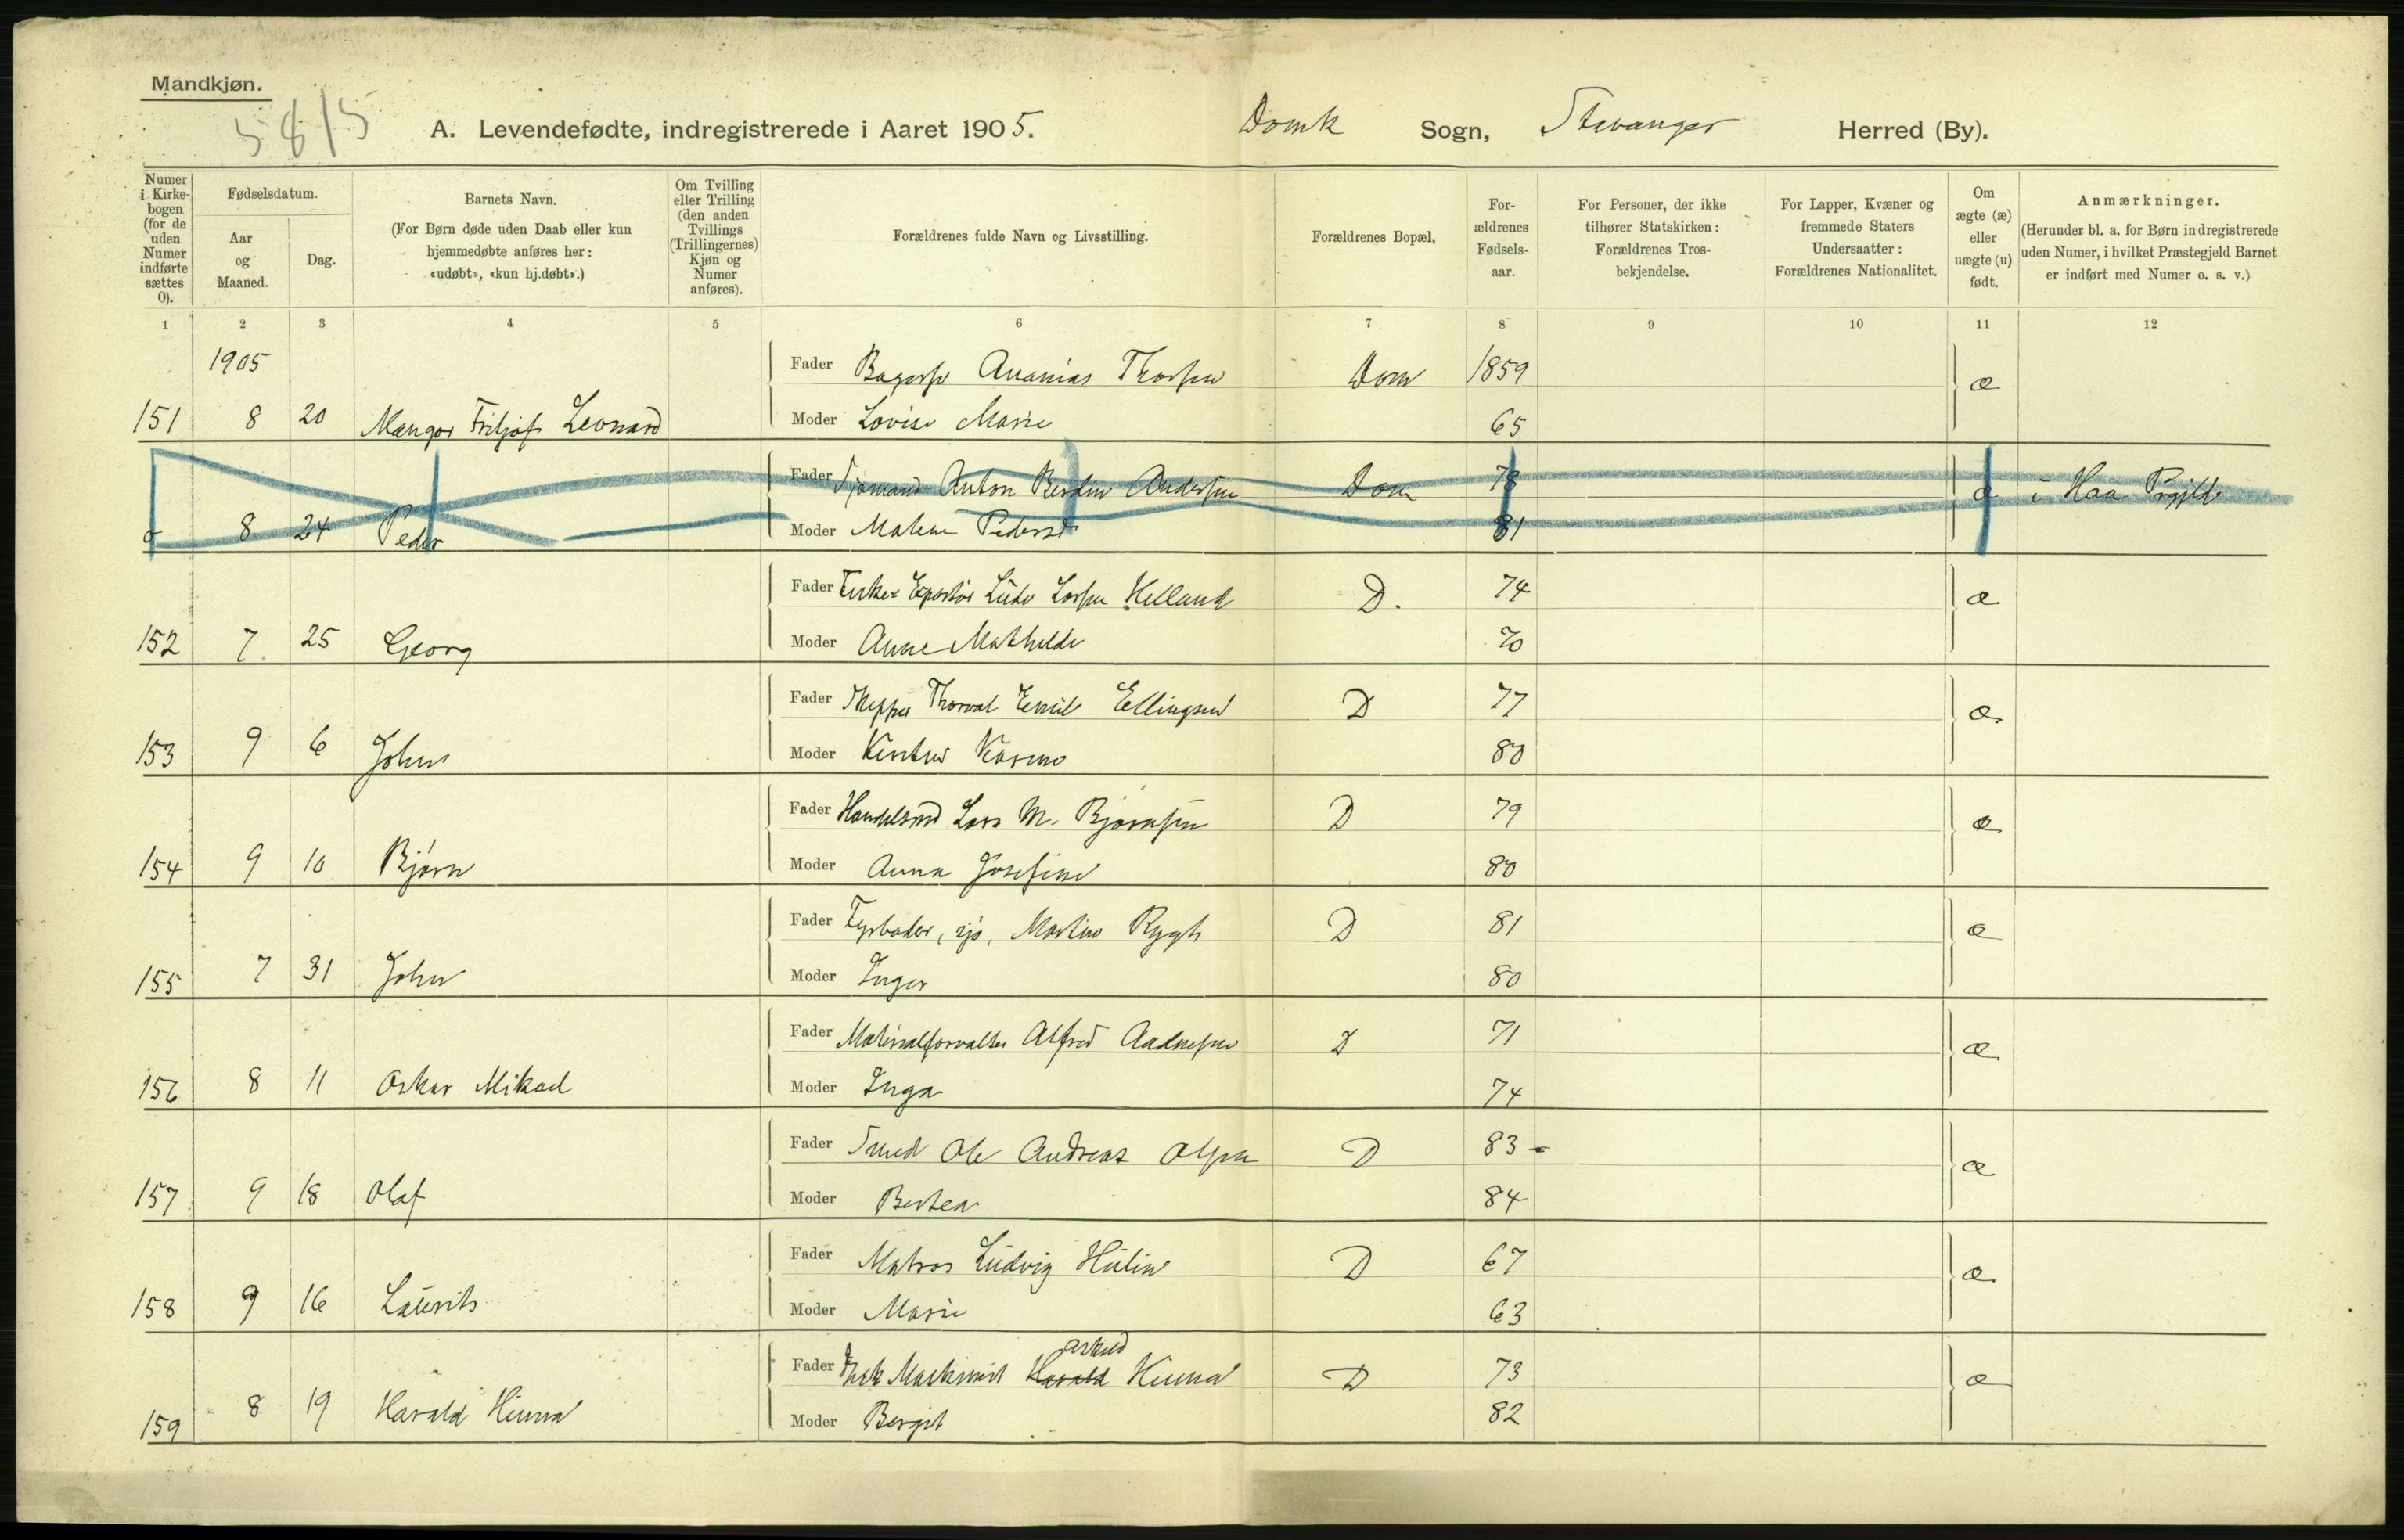 Mandkjøn.
5815
A. Levendefødte, indregistrerede i Aaret 1905. Domk Sogn, Stavanger Herred (By).
Numer i Kirke-bogen (for de uden Numer indførte sættes 0).
Fødselsdatum.
Aar og Maaned.
Dag.
Barnets Navn.
(For Børn døde uden Daab eller kun hjemmedøbte anføres her: «udøbt», «kun hj.døbt».)
Om Tvilling eller Trilling (den anden Tvillings (Trillingernes) Kjøn og Numer anføres).
Forældrenes fulde Navn og Livsstilling.
Forældrenes Bopæl,
For-ældrenes Fødsels-aar.
For Personer, der ikke tilhører Statskirken: Forældrenes Tros-bekjendelse.
For Lapper, Kvæner og fremmede Staters Undersaatter: Forældrenes Nationalitet.
Om ægte (æ) eller uægte (u) født.
Anmærkninger.
(Herunder bl. a. for Børn indregistrerede uden Numer, i hvilket Præstegjeld Barnet er indført med Numer o. s. v.)
1 2 3 4 5 6 7 8 9 10 11 12
1905
Fader Ananias Thorsen Dom 1859 æ
151 8 20 Mangor Fritjof Leonard Moder Lovise Marie 65
Fader Sjømand Anton Berdin Andersen Dom 78 æ i Haa Prgjld
o 8 24 Peder Moder Malene Pederst 81
Fader Lars Helland D. 74 æ
152 7 25 Georg Moder Anne Mathilde 70
Fader Skipper Thorval Emil Ellingsen D 77 æ
153 9 6 John Moder Karine 80
Fader Handelsmd Lars M. Bjørnsen D 79 æ
154 9 10 Bjørn Moder Anna Josefine 80
Fader Fyrbøder, Martin Rygh D 81 æ
155 7 31 John Moder Inger 80
Fader Materialforvalter Alfred Aadnesen D 71 æ
156 8 11 Oskar Mikael Moder Inga 74
Fader Smed Ole Andreas Olsen D 83 æ
157 9 18 Olaf Moder Bertea 84
Fader Matros Ludvig Hülin D 67 æ
158 9 16 Laurits Moder Marie 63
Fader Maskinist Harald Hinna D 73 æ
159 8 19 Harald Hinna Moder Bergit 82